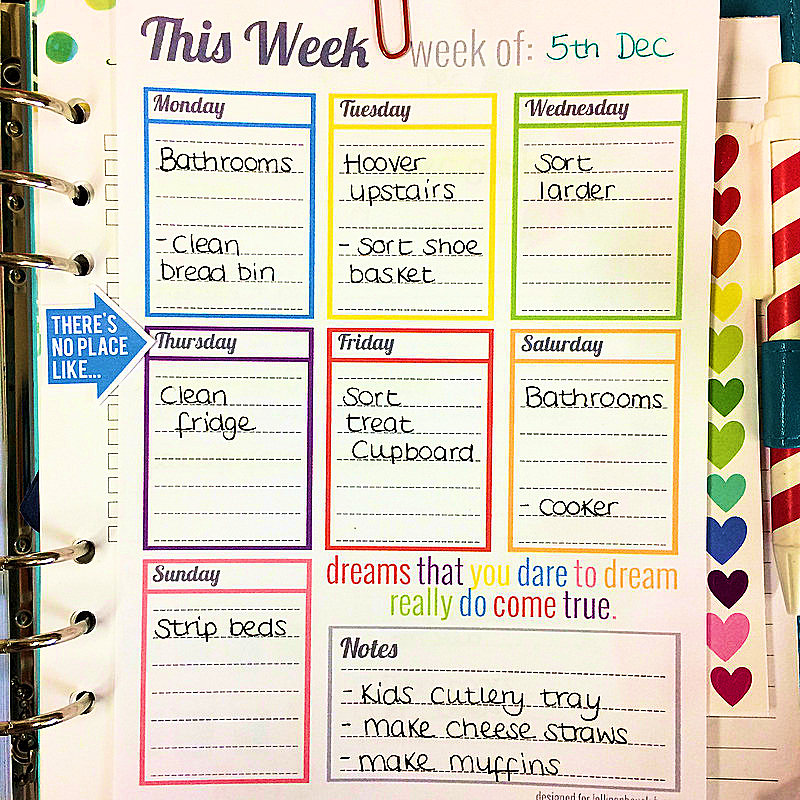 This Week week of: 5th Dec
Monday
Bathrooms
- Clean
bread bin
Tuesday
Hoover
upstairs
- Sort shoe
basket
Wednesday
Sort
larder
THERE'S
NO PLACE
LIKE...
Thursday
Clean
fridge
Friday
Sort
treat
Cupboard
Saturday
Bathrooms
- Cooker
Sunday
Strip beds
dreams that you dare to dream
really do come true.
Notes
- Kids cutlery tray
- make cheese straws
- make muffins
designed for